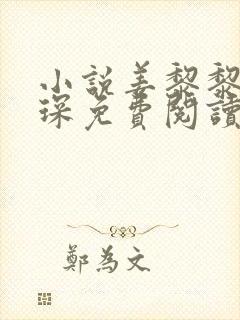 小說姜黎黎
琛免費閱讀
鄭為文